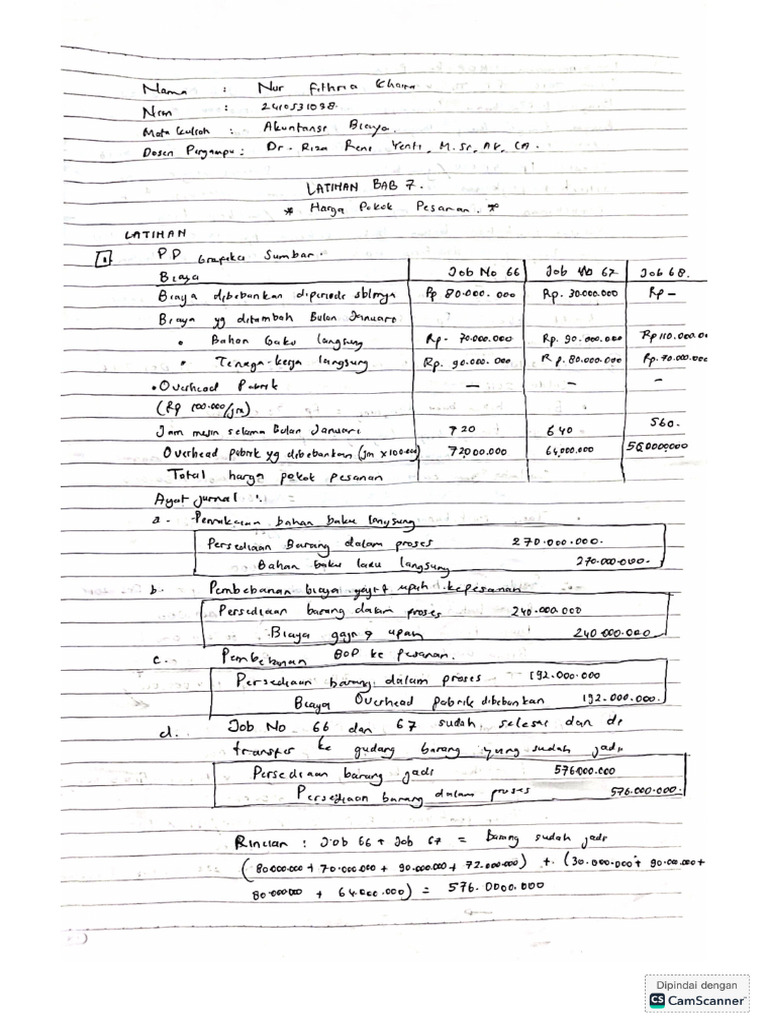 Nama : Nur Fithria Khaira
Nim : 2410531098
Mata Kuliah : Akuntansi Biaya.
Dosen Pengampu : Dr. Riza Reni Yenti, M.Sc, Ak, CA.
LATIHAN BAB 7.
* Harga Pokok Pesanan. *
LATIHAN
1 PD Grafika Sumbar.
Biaya Job No 66 Job No 67 Job 68.
Biaya dibebankan diperiode sblmnya Rp 80.000.000 Rp. 30.000.000 Rp -
Biaya yg ditambah Bulan Januari
• Bahan baku langsung Rp- 70.000.000 Rp. 90.000.000 Rp 110.000.0
• Tenaga-kerja langsung Rp. 90.000.000 Rp. 80.000.000 Rp. 70.000.00
• Overhead Pabrik - - -
(Rp 100.000/jm)
Jam mesin selama Bulan Januari 720 640 560.
Overhead pabrik yg dibebankan (jm x 100.000) 72.000.000 64.000.000 56.0000000
Total harga pokok pesanan
Ayat jurnal :
a. Pemakaian bahan baku langsung
Persediaan Barang dalam proses 270.000.000.
Bahan baku langsung 270.000.000.
b. Pembebanan biaya gaji & upah kepesanan
Persediaan barang dalam proses 240.000.000
Biaya gaji & upah 240.000.000
c. Pembebanan BOP ke pesanan.
Persediaan barang dalam proses 192.000.000
Biaya Overhead pabrik dibebankan 192.000.000.
d. Job No 66 dan 67 sudah selesai dan di
transfer ke gudang barang yang sudah jadi
Persediaan barang jadi 576.000.000
Persediaan barang dalam proses 576.000.000.
Rincian : Job 66 + Job 67 = barang sudah jadi
(80.000.000 + 70.000.000 + 90.000.000 + 72.000.000) + (30.000.000 + 90.000.000 +
80.000.000 + 64.000.000) = 576.0000.000
Dipindai dengan
CS CamScanner